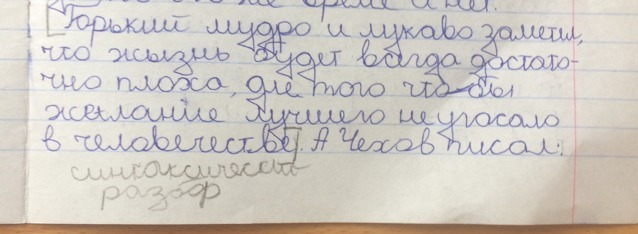 же время и нет.
[Горький мудро и лукаво заметил,
что жызнь будет всегда достато-
чно плоха, для того что-бы
жылание лучшего неугосало
в человечестве]. А Чехов писал:
синтаксический
разбор